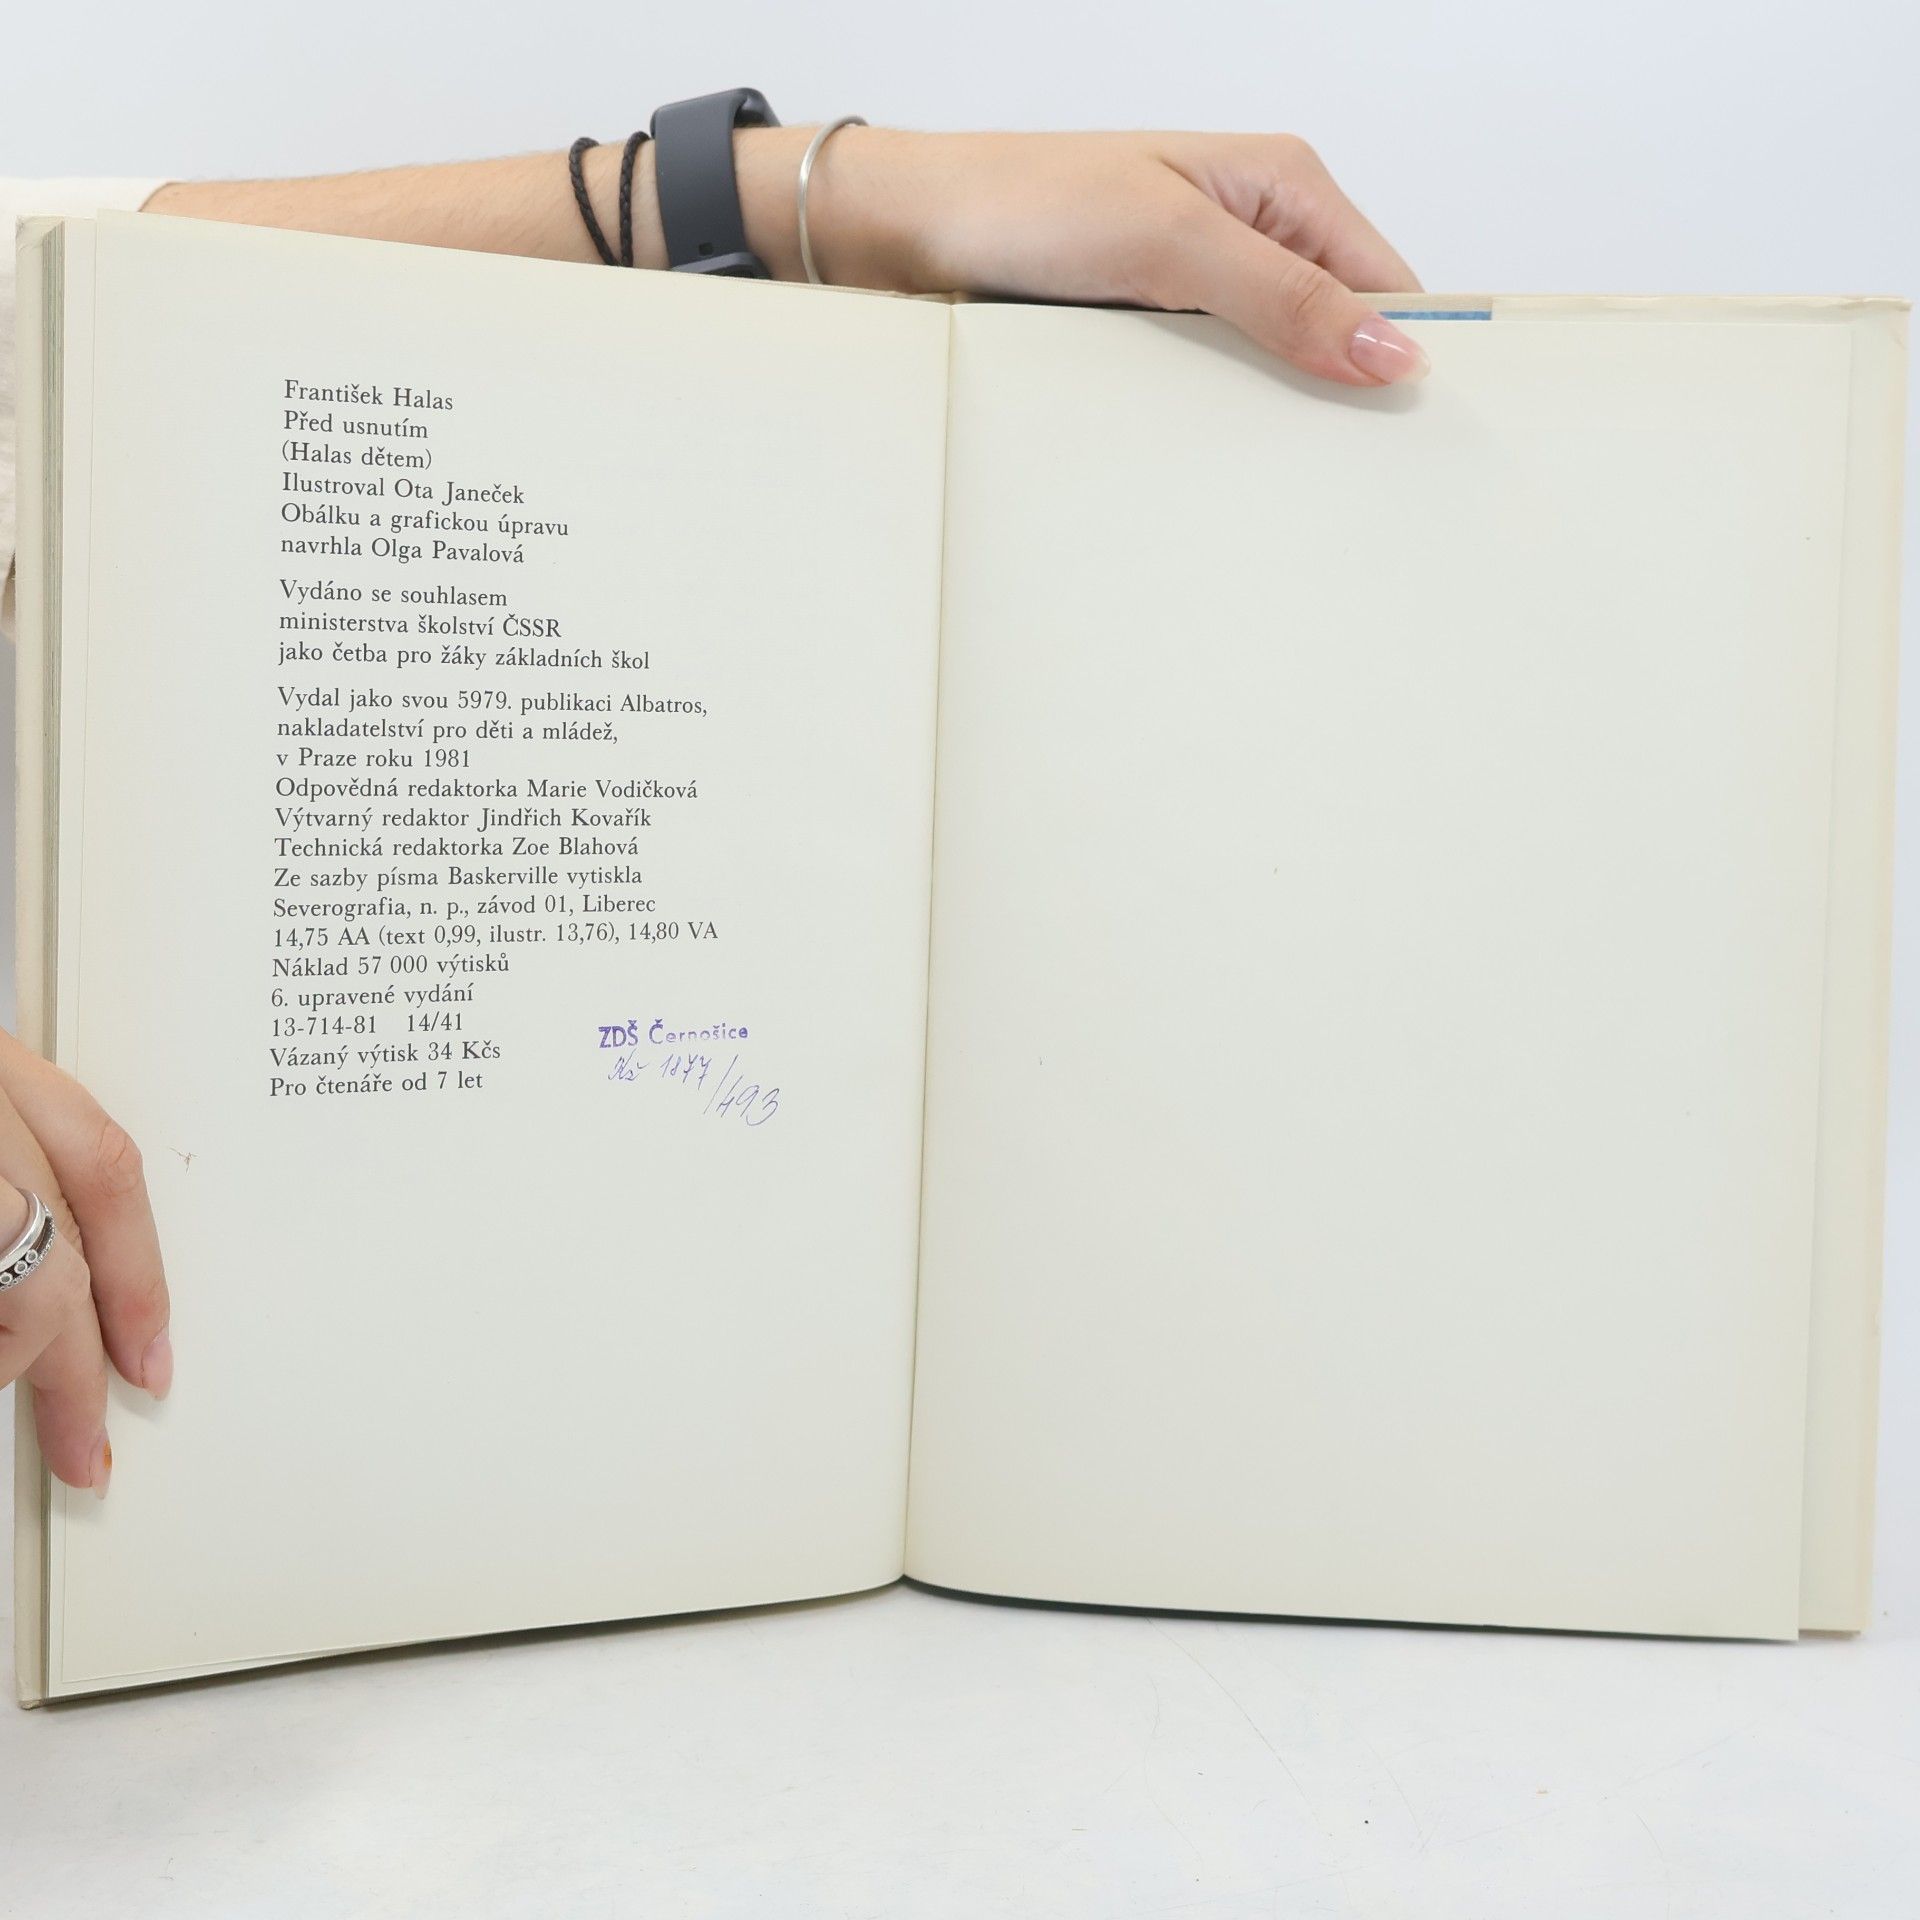 František Halas
Před usnutím
(Halas dětem)
Ilustroval Ota Janeček
Obálku a grafickou úpravu
navrhla Olga Pavalová
Vydáno se souhlasem
ministerstva školství ČSSR
jako četba pro žáky základních škol
Vydal jako svou 5979. publikaci Albatros,
nakladatelství pro děti a mládež,
v Praze roku 1981
Odpovědná redaktorka Marie Vodičková
Výtvarný redaktor Jindřich Kovařík
Technická redaktorka Zoe Blahová
Ze sazby písma Baskerville vytiskla
Severografia, n. p., závod 01, Liberec
14,75 AA (text 0,99, ilustr. 13,76), 14,80 VA
Náklad 57 000 výtisků
6. upravené vydání
13-714-81 14/41
Vázaný výtisk 34 Kčs
Pro čtenáře od 7 let
ZDŠ Černošice
1877/493